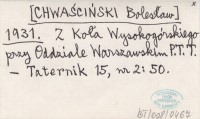 [CHWAŚCIŃSKI Bolesław]
1931. Z Koła Wysokogórskiego
przy Oddziale Warszawskim P.T.T.
— Taternik 15, nr 2: 50.